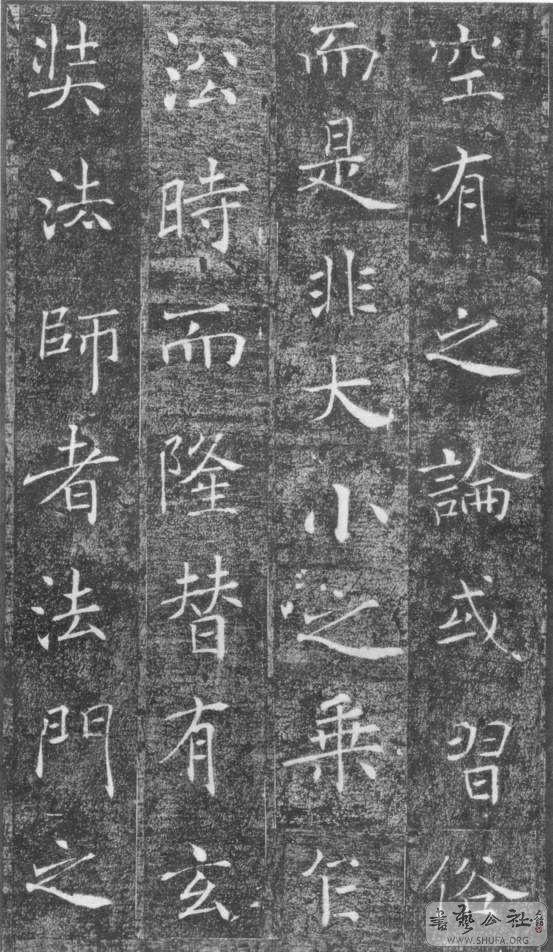 空有之論或習俗
而是非大小之乗乍
㳂時而隆替有玄
奘法師者法門之
書藝公社
WWW.SHUFA.ORG